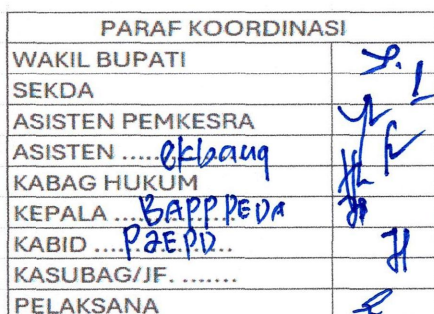 PARAF KOORDINASI
WAKIL BUPATI
SEKDA
ASISTEN PEMKESRA
ASISTEN ..... ekbang
KABAG HUKUM
KEPALA .... BAPPPEDA
KABID .... P2EPD...
KASUBAG/JF. ........
PELAKSANA